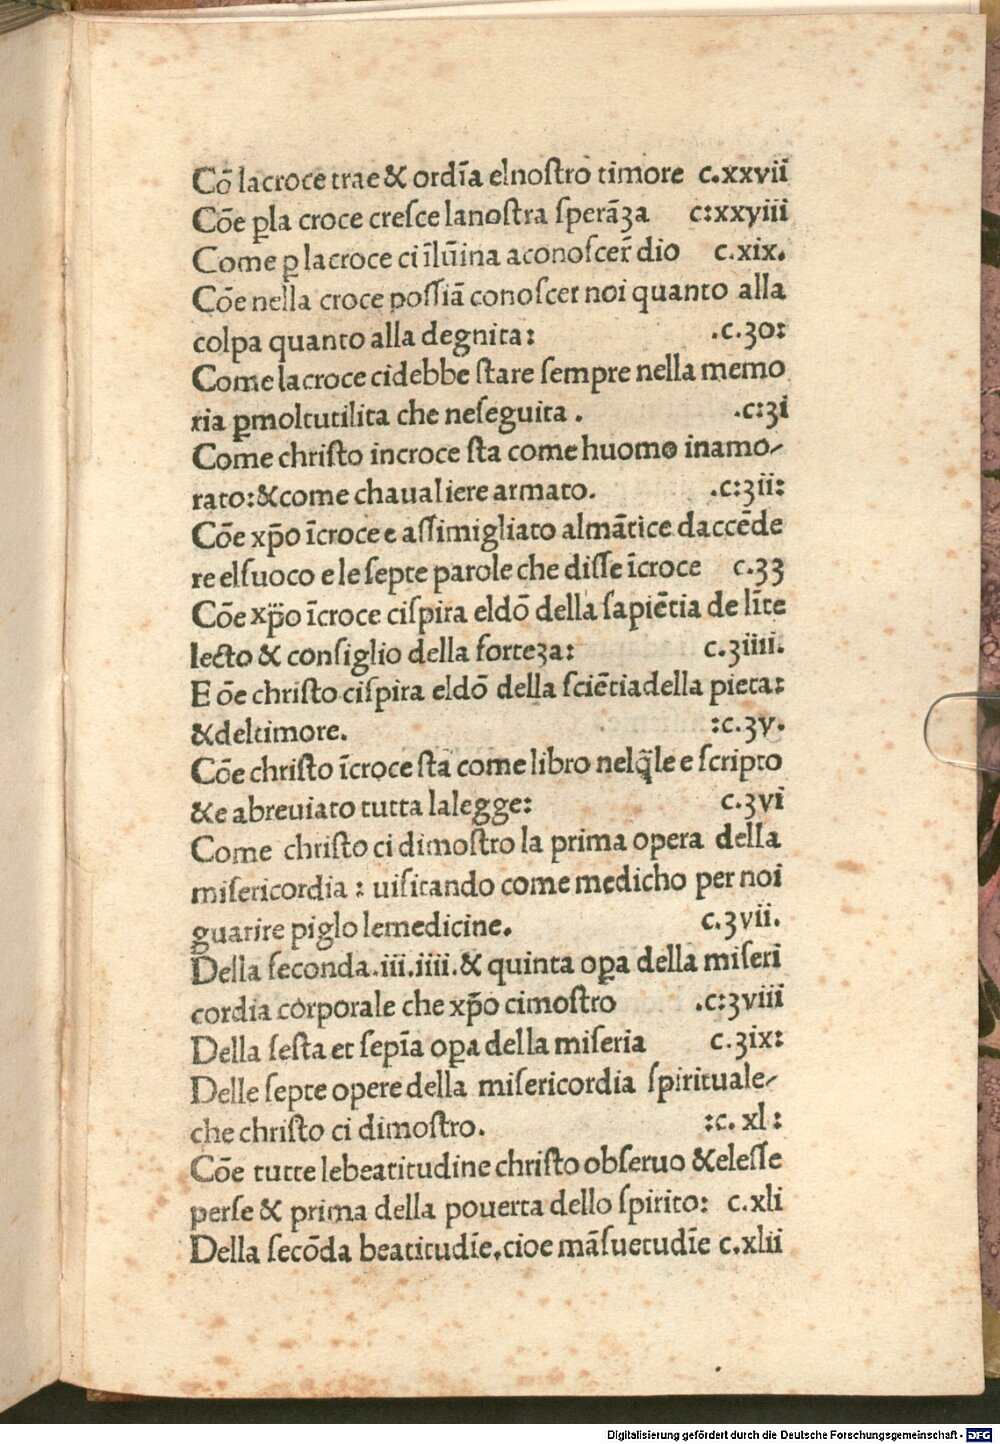 Cō lacroce trae & ordīa elnoſtro timore c.xxvii
Cōe ꝑla croce creſce lanoſtra ſperāʒa c:xxviii
Come ꝑ lacroce ci īlūina aconoſcer̄ dio c.xix.
Cōe nella croce poſſiā conoſcer noi quanto alla
colpa quanto alla degnita: .c.30:
Come lacroce cidebbe ſtare ſempre nella memo
ria ꝑmoltutilita che neſeguita . .c:3i
Come chriſto incroce ſta come huomo inamo⸗
rato:&come chaualiere armato. .c:3ii:
Cōe xp̄o īcroce e aſſimigliato almātice daccēde
re elfuoco e le ſepte parole che diſſe īcroce c.33
Cōe xp̄o īcroce ciſpira eldō della ſapiētia de līte
lecto & conſiglio della forteʒa: c.3iiii.
E ōe chriſto ciſpira eldō della ſciētiadella pieta:
&deltimore. :c.3v.
Cōe chriſto īcroce ſta come libro nelq̄le e ſcripto
&e abreuiato tutta lalegge: c.3vi
Come chriſto ci dimoſtro la prima opera della
miſericordia : uiſitando come medicho per noi
guarire piglo lemedicine. c.3vii.
Della ſeconda.iii.iiii.& quinta oꝑa della miſeri
cordia corporale che xp̄o cimoſtro .c:3viii
Della ſeſta et ſepīa oꝑa della miſeria c.3ix:
Delle ſepte opere della miſericordia ſpirituale⸗
che chriſto ci dimoſtro. :c. xl:
Cōe tutte lebeatitudine chriſto obſeruo &eleſſe
perſe & prima della pouerta dello ſpirito: c.xli
Della ſecōda beatitudīe.cioe māſuetudīe c.xlii
Digitalisierung gefördert durch die Deutsche Forschungsgemeinschaft - DFG